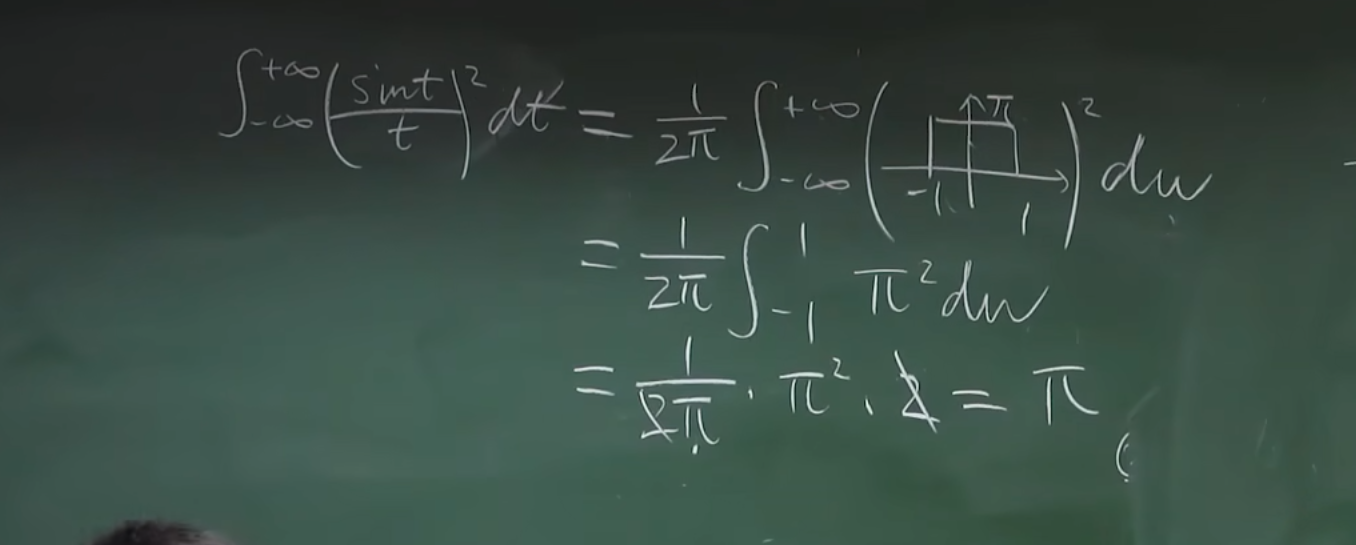 ∫_{-∞}^{+∞} (sint/t)² dt = 1/2π ∫_{-∞}^{+∞} ( π -1 1 )² dw
= 1/2π ∫_{-1}^{1} π² dw
= 1/2π · π² · 2 = π